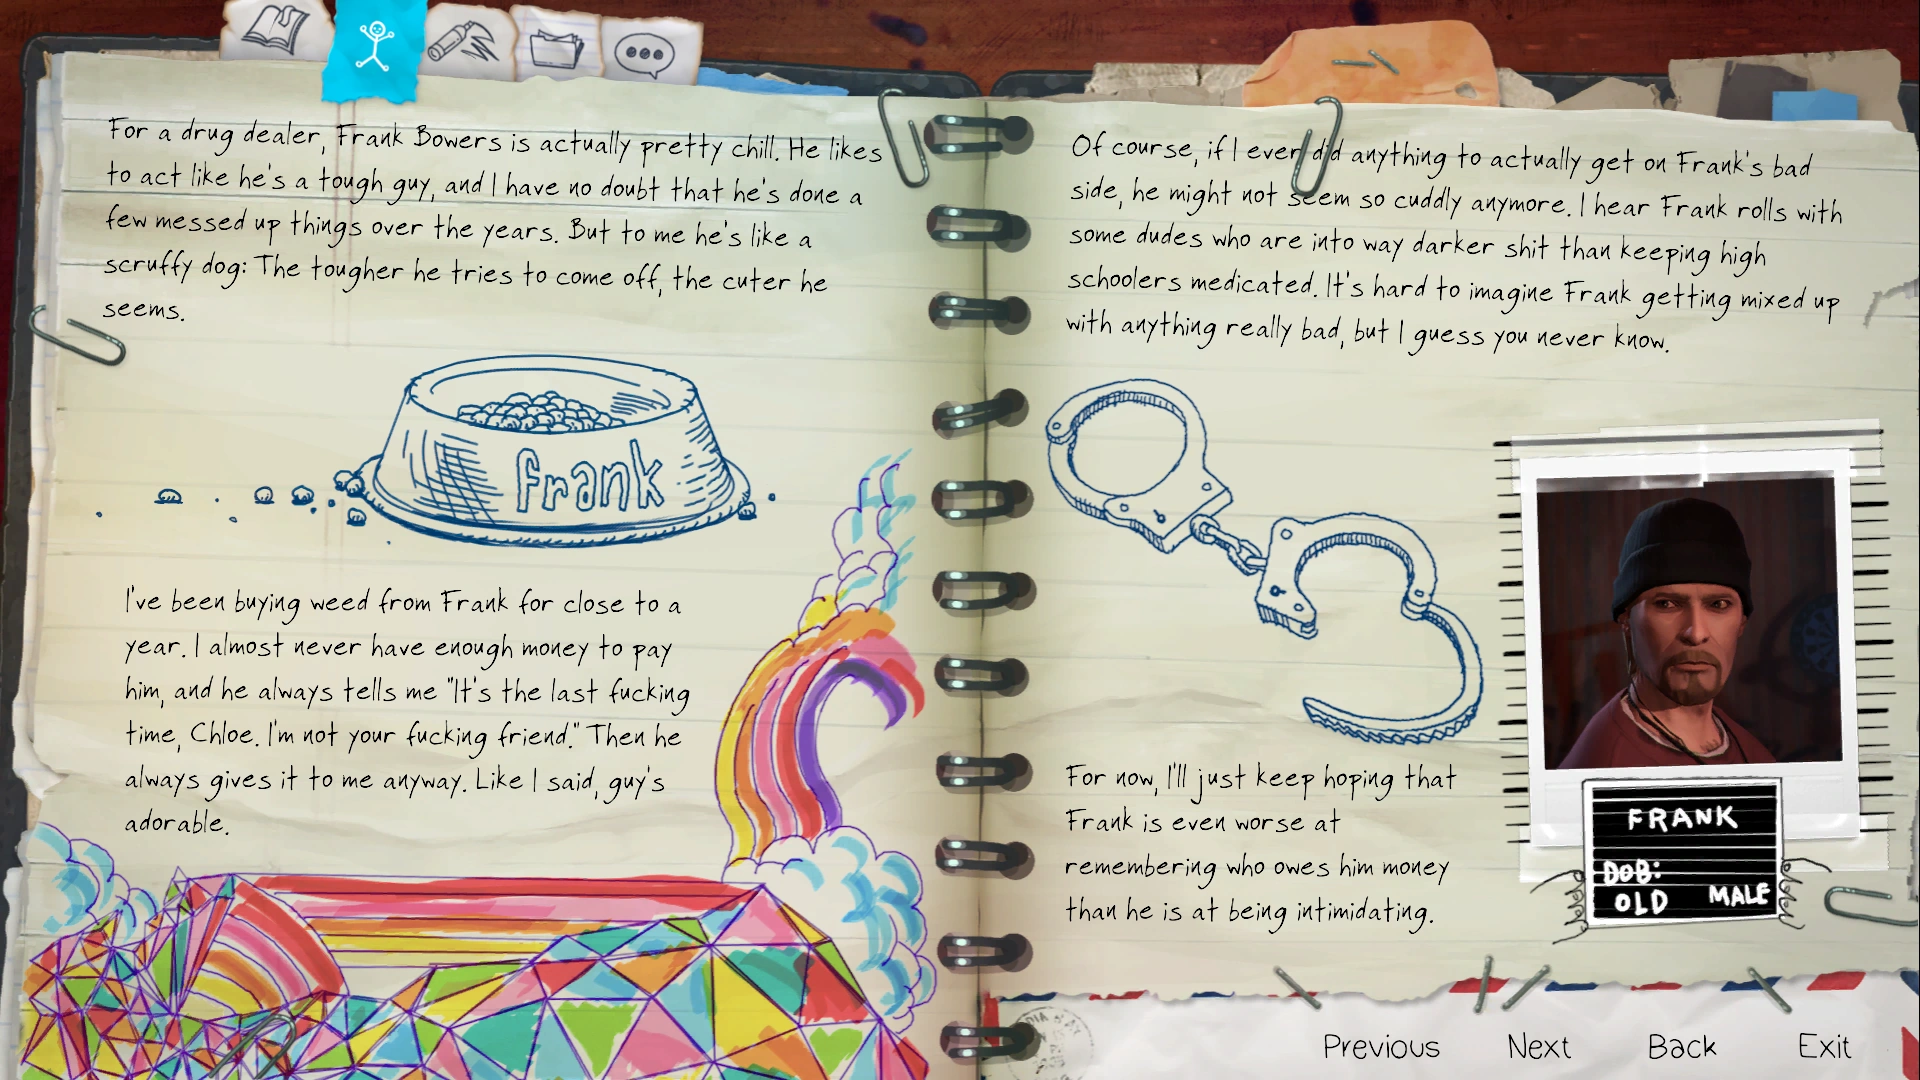 For a drug dealer, Frank Bowers is actually pretty chill. He likes
to act like he's a tough guy, and I have no doubt that he's done a
few messed up things over the years. But to me he's like a
scruffy dog: The tougher he tries to come off, the cuter he
seems.
frank
I've been buying weed from Frank for close to a
year. I almost never have enough money to pay
him, and he always tells me "It's the last fucking
time, Chloe. I'm not your fucking friend." Then he
always gives it to me anyway. Like I said, guy's
adorable.
Of course, if I ever did anything to actually get on Frank's bad
side, he might not seem so cuddly anymore. I hear Frank rolls with
some dudes who are into way darker shit than keeping high
schoolers medicated. It's hard to imagine Frank getting mixed up
with anything really bad, but I guess you never know.
For now, I'll just keep hoping that
Frank is even worse at
remembering who owes him money
than he is at being intimidating.
FRANK
DOB:
OLD MALE
Previous Next Back Exit